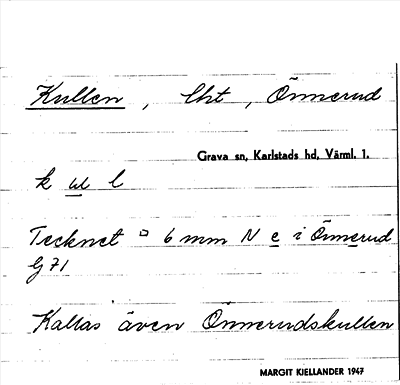 Kullen, lht, Önnerud
Grava sn, Karlstads hd, Värml. l.
k ul l
Tecknet □ 6 mm N e i Önnerud
G 71
Kallas även Önnerudskullen
MARGIT KJELLANDER 1947